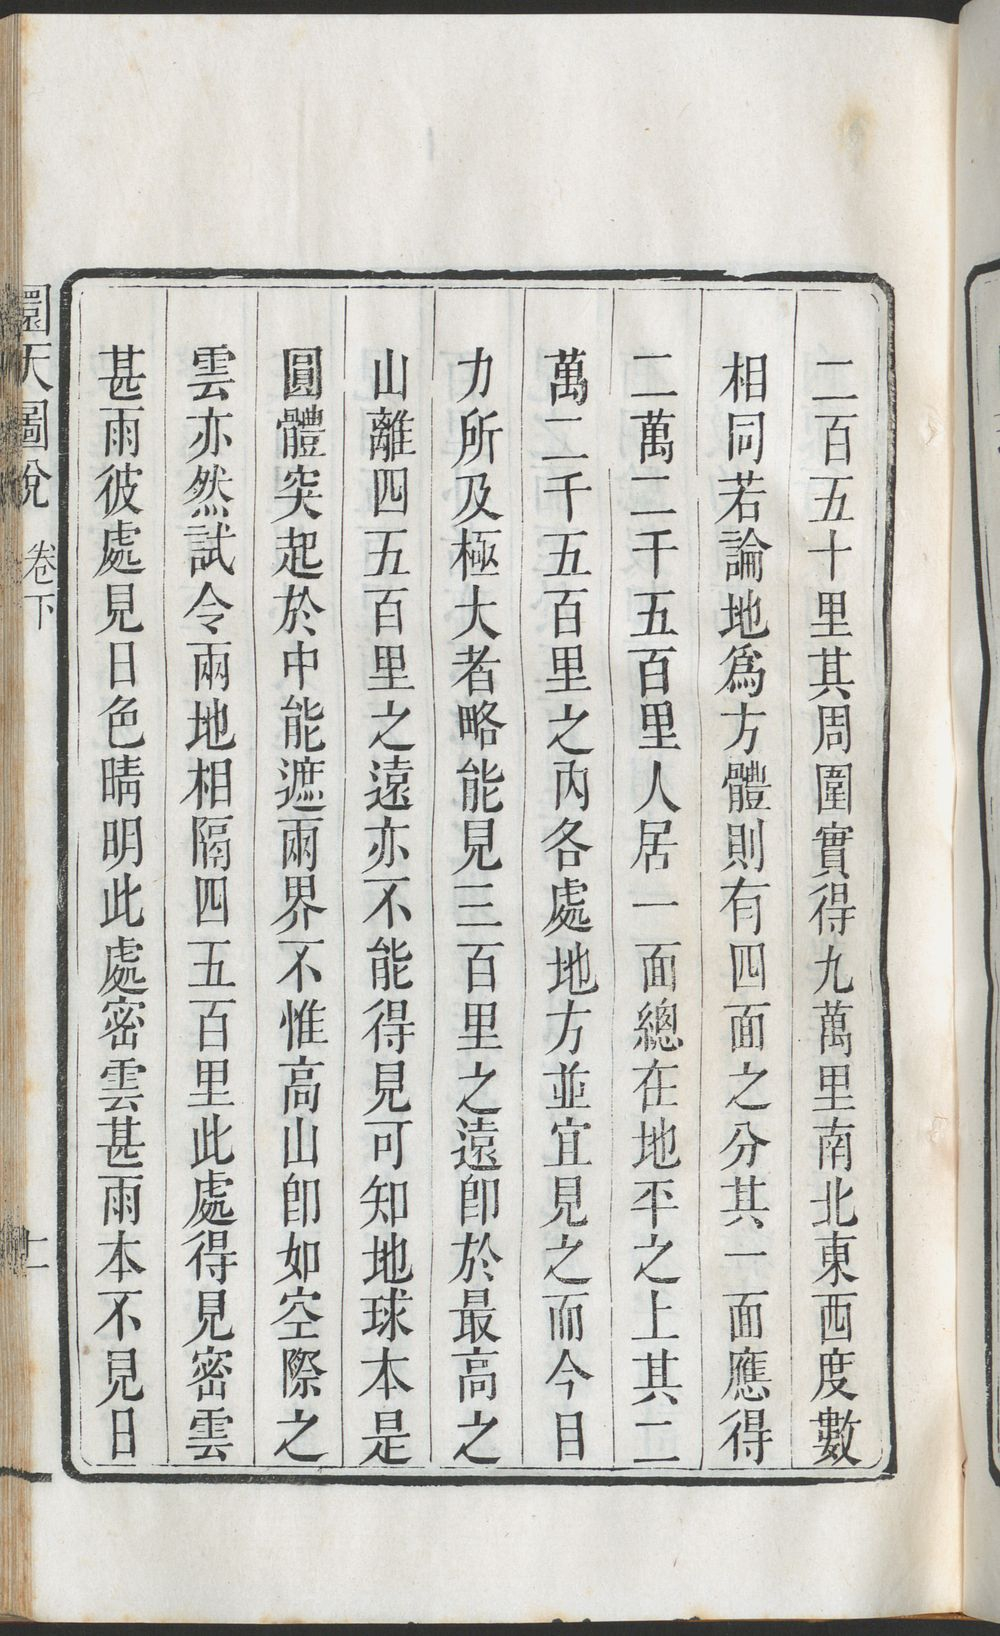 二百五十里其周圍實得九萬里南北東西度數
相同若論地爲方體則有四面之分其一面應得
二萬二千五百里人居一面總在地平之上其二
萬二千五百里之內各處地方並宜見之而今目
力所及極大者略能見三百里之遠卽於最高之
山離四五百里之遠亦不能得見可知地球本是
圓體突起於中能遮兩界不惟高山卽如空際之
雲亦然試令兩地相隔四五百里此處得見密雲
甚雨彼處見日色晴明此處密雲甚雨本不見日
圜天圖說 卷下